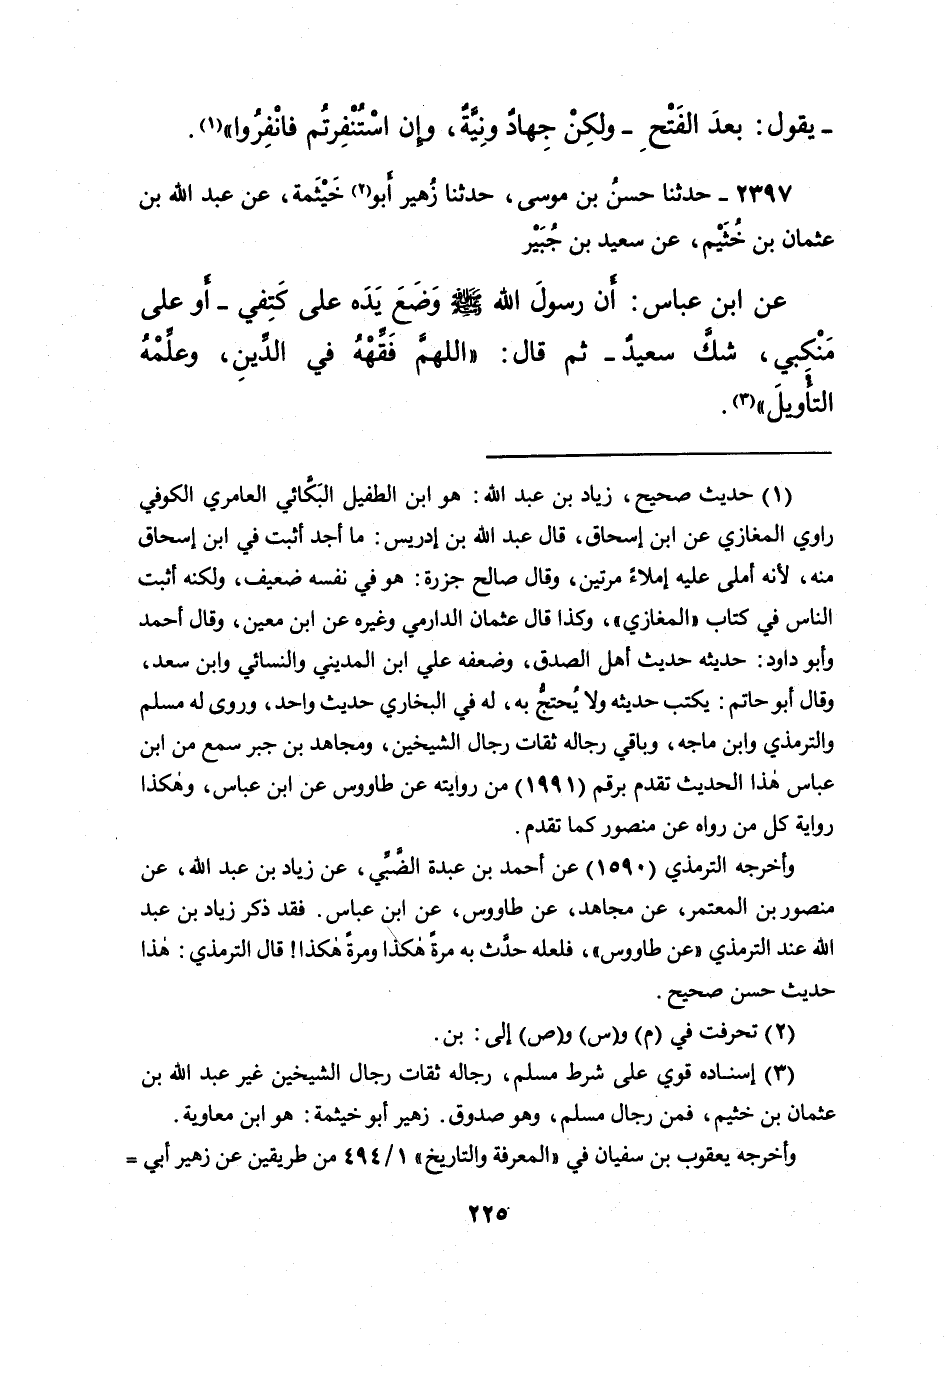 ـ يقول: بعدَ الفَتْحِ ـ ولكِنْ جِهادٌ ونِيَّةٌ، وإن اسْتُنْفِرتُم فانْفِرُوا»(١).
٢٣٩٧ ـ حدثنا حسنُ بن موسى، حدثنا زُهير أَبو(٢) خَيْثمة، عن عبد الله بن
عثمان بن خُثَيْم، عن سعيد بن جُبَيْر
عن ابن عباس: أَن رسولَ الله ﷺ وَضَعَ يَدَه على كَتِفي ـ أَو على
مَنْكِبي، شكَّ سعيدٌ ـ ثم قال: «اللهمَّ فَقِّهْهُ في الدِّينِ، وعلِّمْهُ
التأْويلَ»(٣).
(١) حديث صحيح، زياد بن عبد الله: هو ابن الطفيل البَكَّائي العامري الكوفي
راوي المغازي عن ابن إسحاق، قال عبد الله بن إدريس: ما أجد أثبت في ابن إسحاق
منه، لأنه أملى عليه إملاءً مرتين، وقال صالح جزرة: هو في نفسه ضعيف، ولكنه أثبت
الناس في كتاب «المغازي»، وكذا قال عثمان الدارمي وغيره عن ابن معين، وقال أحمد
وأبو داود: حديثه حديث أهل الصدق، وضعفه علي ابن المديني والنسائي وابن سعد،
وقال أبو حاتم: يكتب حديثه ولا يُحتجُّ به، له في البخاري حديث واحد، وروى له مسلم
والترمذي وابن ماجه، وباقي رجاله ثقات رجال الشيخين، ومجاهد بن جبر سمع من ابن
عباس هٰذا الحديث تقدم برقم (١٩٩١) من روايته عن طاووس عن ابن عباس، وهٰكذا
رواية كل من رواه عن منصور كما تقدم.
وأخرجه الترمذي (١٥٩٠) عن أحمد بن عبدة الضَّبِّي، عن زياد بن عبد الله، عن
منصور بن المعتمر، عن مجاهد، عن طاووس، عن ابن عباس. فقد ذكر زياد بن عبد
الله عند الترمذي «عن طاووس»، فلعله حدَّث به مرةً هٰكذا ومرةً هٰكذا! قال الترمذي: هٰذا
حديث حسن صحيح.
(٢) تحرفت في (م) و(س) و(ص) إلى: بن.
(٣) إسناده قوي على شرط مسلم، رجاله ثقات رجال الشيخين غير عبد الله بن
عثمان بن خثيم، فمن رجال مسلم، وهو صدوق. زهير أبو خيثمة: هو ابن معاوية.
وأخرجه يعقوب بن سفيان في «المعرفة والتاريخ» ٤٩٤/١ من طريقين عن زهير أبي =
٢٢٥